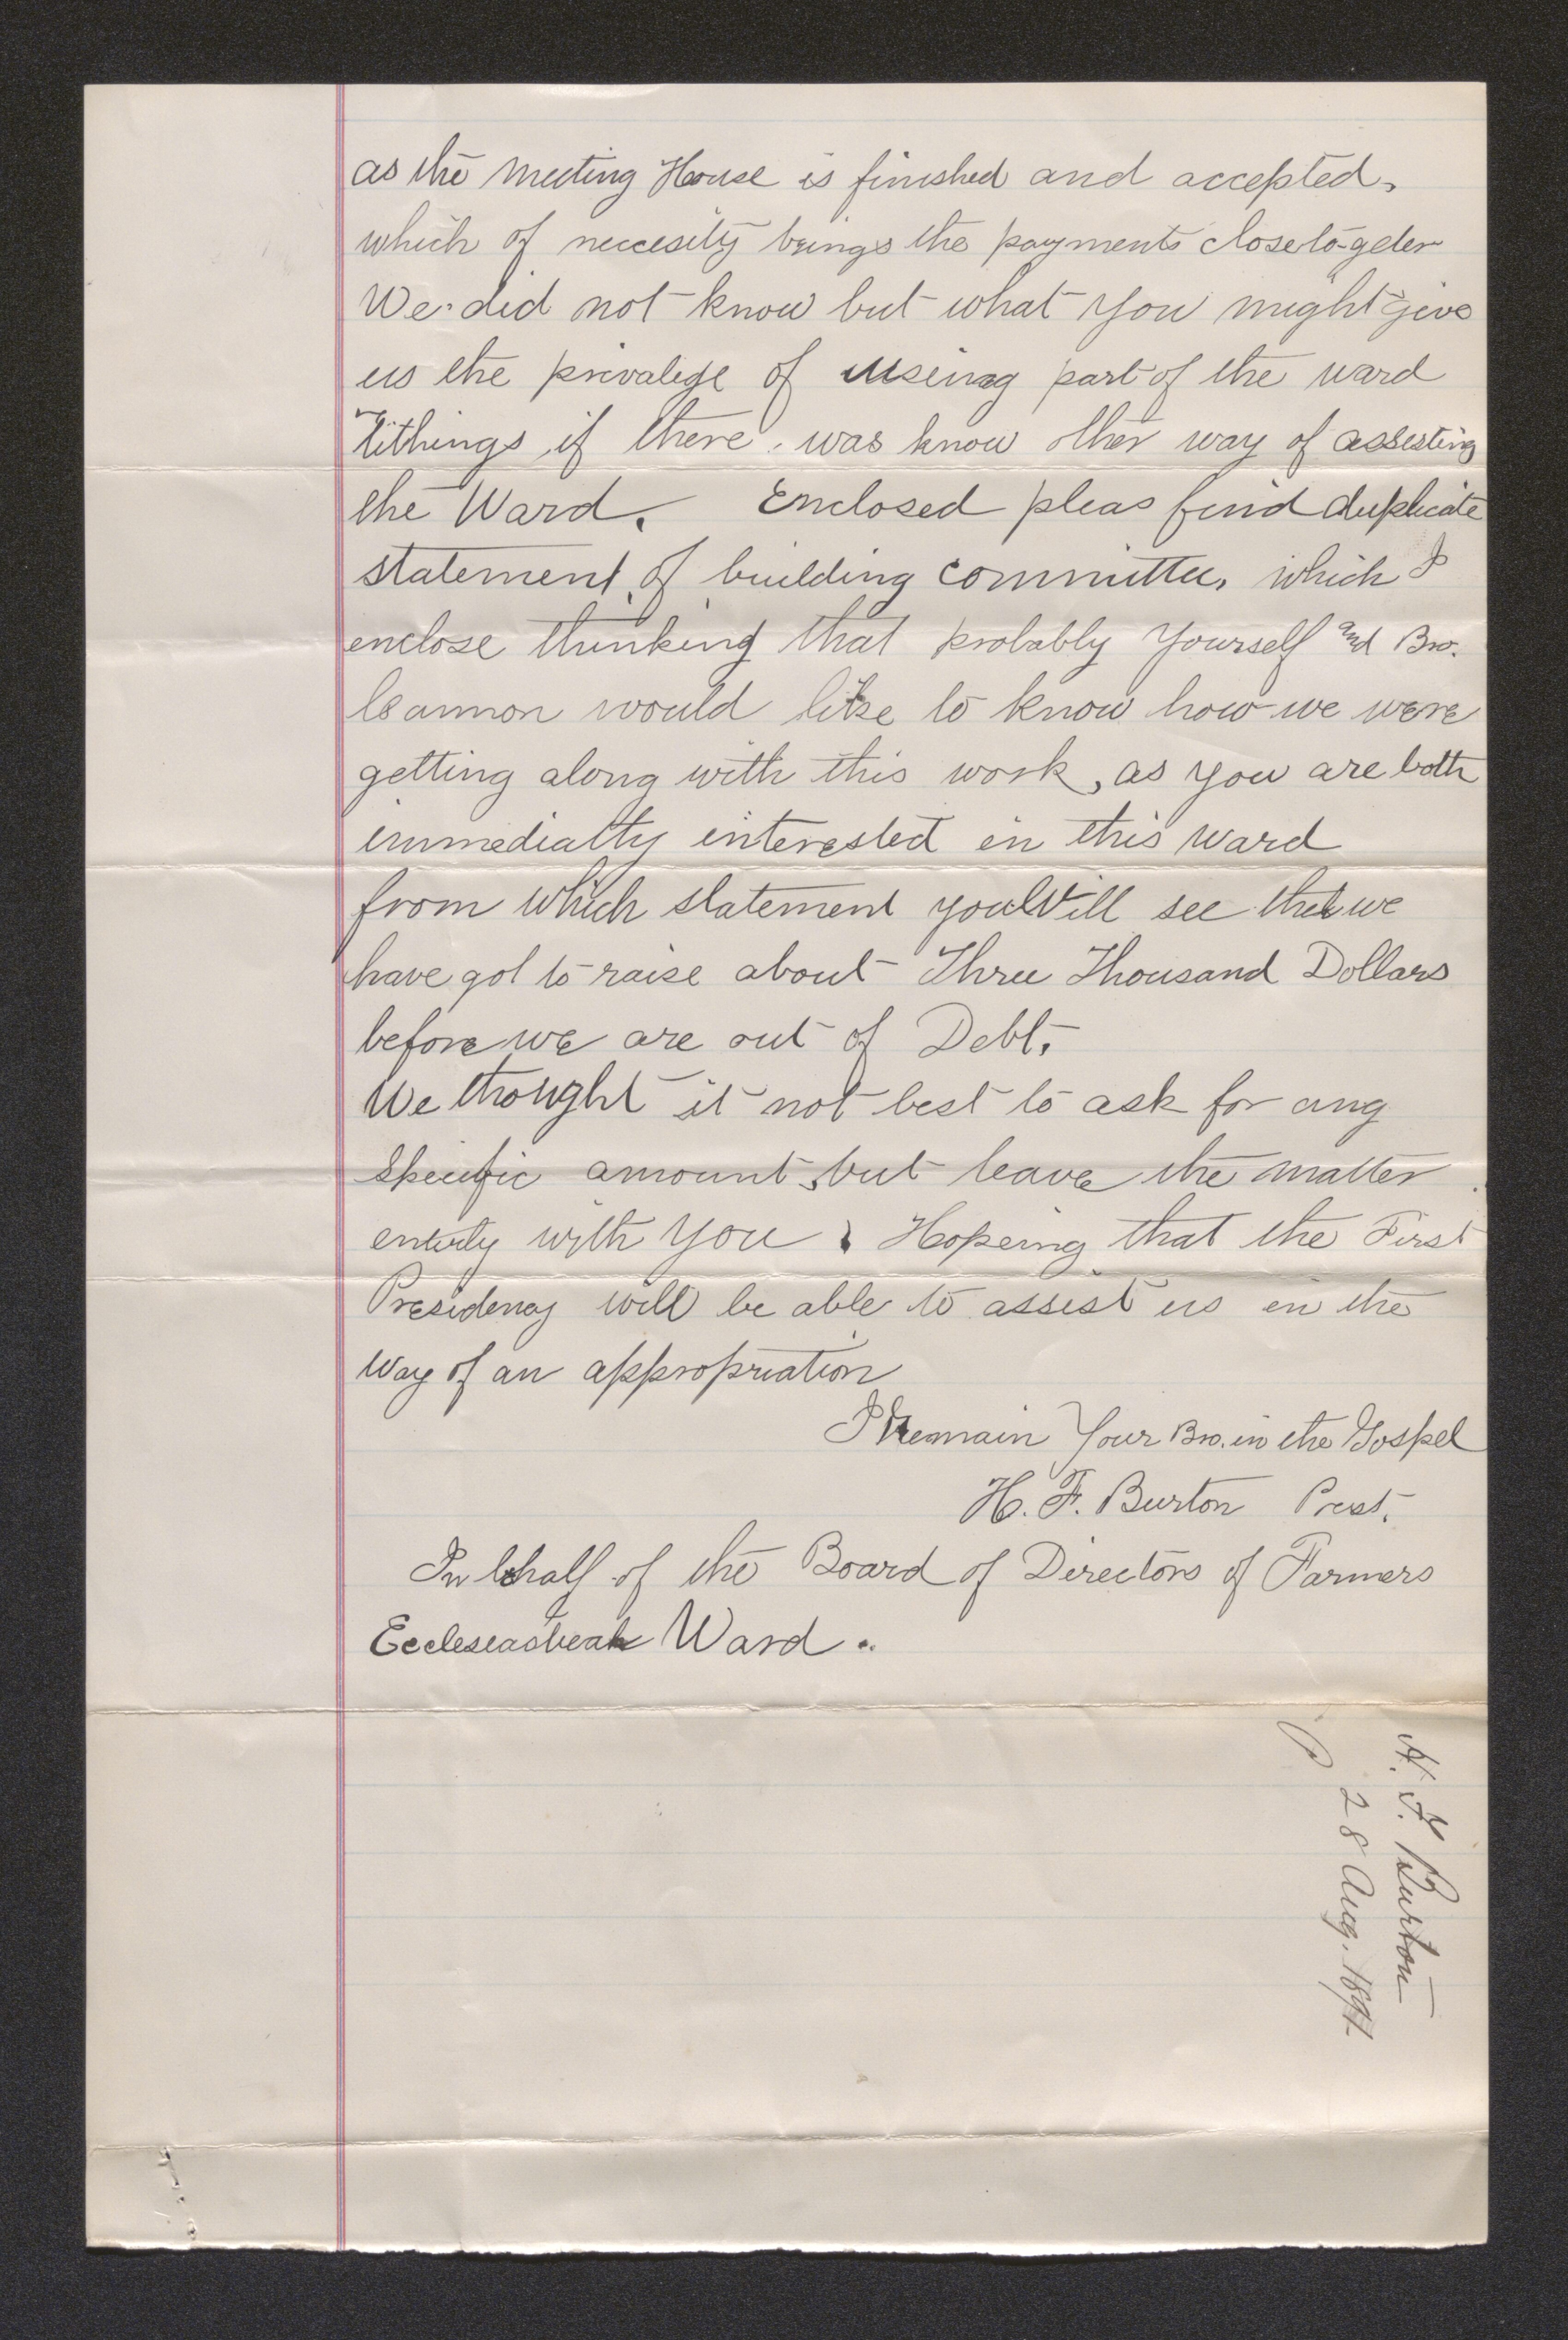 as the Meeting House is finished and accepted,
which of neccesity brings the payments close to-geter
We did not know but what you might give
us the privalige of using part of the ward
Tithings if there was know other way of assesting
the Ward. Enclosed pleas find duplicate
statement of building committee, which I
enclose thinking that probably Yourself and Bro.
Cannon would like to know how we were
getting along with this work, as you are both
immediatly interested in this ward
from which statement you Will see that we
have got to raise about Three Thousand Dollars
before we are out of Debt.
We thought it not best to ask for any
specific amount, but leave the matter
entirly with you. Hopeing that the First
Presidency will be able to assist us in the
way of an appropriation
I Remain Your Bro. in the Gospel
H. F. Burton Prest.
In behalf of the Board of Directors of Farmers
Eccleseasticak Ward.
H. F. Burton
28 Aug. 1891.
P